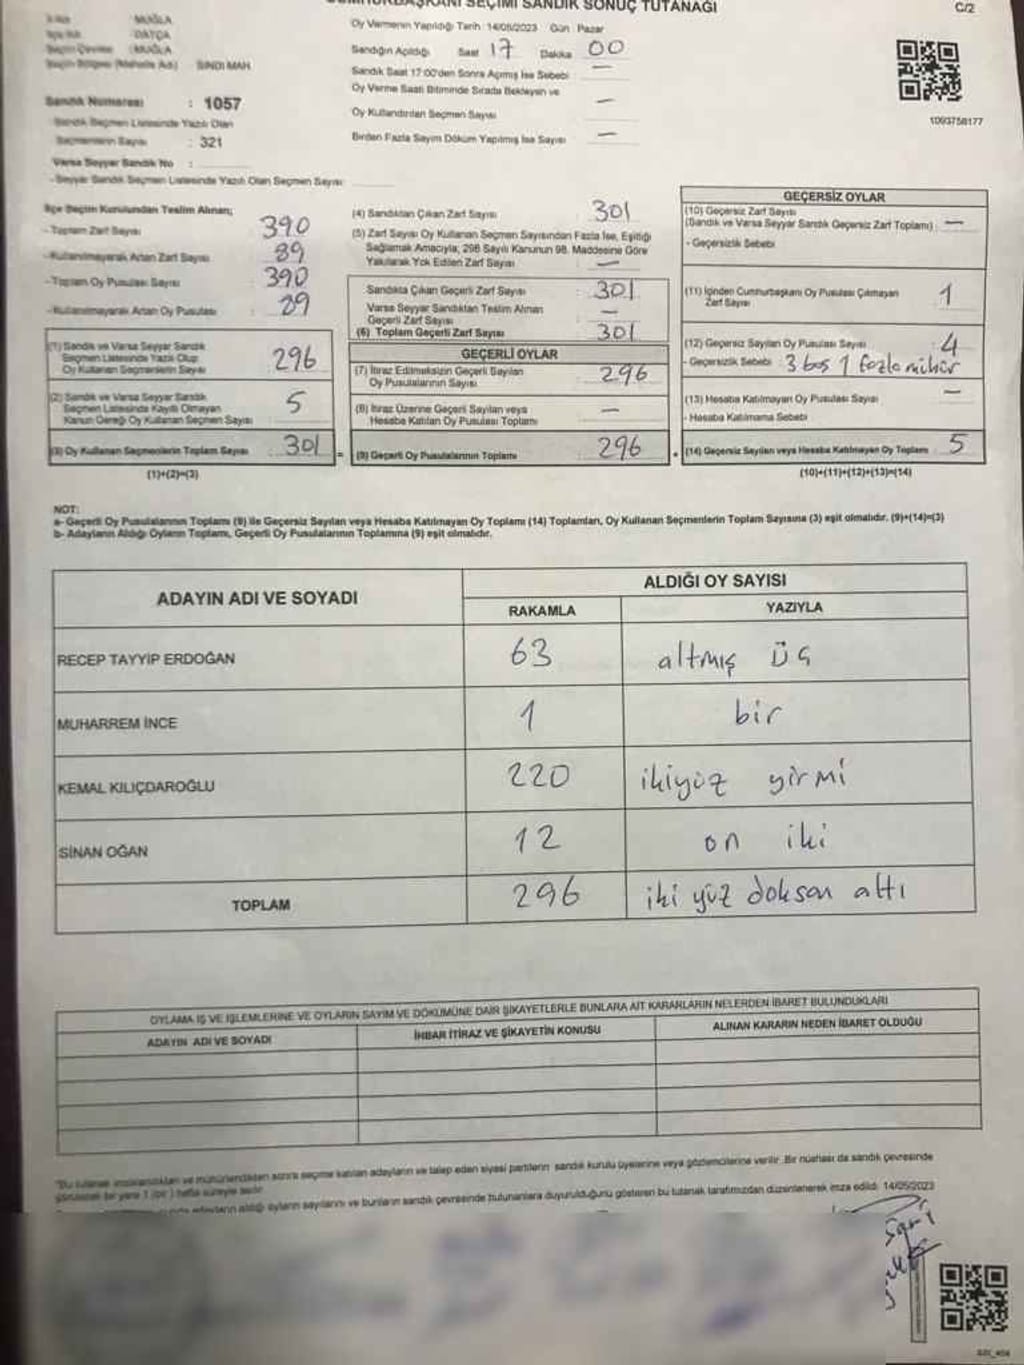 CUMHURBAŞKANI SEÇİMİ SANDIK SONUÇ TUTANAĞI
C/2
MUĞLA
DATÇA
MUĞLA
SINDI MAH
Sandık Numarası : 1057
Sandık Seçmen Listesinde Yazılı Olan
Seçmenlerin Sayısı : 321
Varsa Seyyar Sandık No :
- Seyyar Sandık Seçmen Listesinde Yazılı Olan Seçmen Sayısı:
Oy Vermenin Yapıldığı Tarih : 14/05/2023 Gün : Pazar
Sandığın Açıldığı Saat 17 Dakika 00
Sandık Saat 17:00'den Sonra Açımış İse Sebebi : —
Oy Verme Saati Bitiminde Sırada Bekleyen ve
Oy Kullandırılan Seçmen Sayısı : —
Birden Fazla Sayım Döküm Yapılmış İse Sayısı : —
1093758177
İlçe Seçim Kurulundan Teslim Alınan;
- Toplam Zarf Sayısı : 390
- Kullanılmayarak Artan Zarf Sayısı : 89
- Toplam Oy Pusulası Sayısı : 390
- Kullanılmayarak Artan Oy Pusulası : 89
(1) Sandık ve Varsa Seyyar Sandık
Seçmen Listesinde Yazılı Olup
Oy Kullanan Seçmenlerin Sayısı : 296
(2) Sandık ve Varsa Seyyar Sandık
Seçmen Listesinde Kayıtlı Olmayan
Kanun Gereği Oy Kullanan Seçmen Sayısı : 5
(3) Oy Kullanan Seçmenlerin Toplam Sayısı : 301
(1)+(2)=(3)
(4) Sandıktan Çıkan Zarf Sayısı : 301
(5) Zarf Sayısı Oy Kullanan Seçmen Sayısından Fazla İse, Eşitliği
Sağlamak Amacıyla; 298 Sayılı Kanunun 98. Maddesine Göre
Yakılarak Yok Edilen Zarf Sayısı : —
Sandıkta Çıkan Geçerli Zarf Sayısı : 301
Varsa Seyyar Sandıktan Teslim Alınan
Geçerli Zarf Sayısı : —
(6) Toplam Geçerli Zarf Sayısı : 301
GEÇERLİ OYLAR
(7) İtiraz Edilmeksizin Geçerli Sayılan
Oy Pusulalarının Sayısı : 296
(8) İtiraz Üzerine Geçerli Sayılan veya
Hesaba Katılan Oy Pusulası Toplamı : —
(9) Geçerli Oy Pusulalarının Toplamı : 296
GEÇERSİZ OYLAR
(10) Geçersiz Zarf Sayısı
(Sandık ve Varsa Seyyar Sandık Geçersiz Zarf Toplamı) : —
- Geçersizlik Sebebi :
(11) İçinden Cumhurbaşkanı Oy Pusulası Çıkmayan
Zarf Sayısı : 1
(12) Geçersiz Sayılan Oy Pusulası Sayısı : 4
- Geçersizlik Sebebi : 3 boş 1 fazla mühür
(13) Hesaba Katılmayan Oy Pusulası Sayısı : —
- Hesaba Katılmama Sebebi :
(14) Geçersiz Sayılan veya Hesaba Katılmayan Oy Toplamı : 5
(10)+(11)+(12)+(13)=(14)
NOT:
a- Geçerli Oy Pusulalarının Toplamı (9) ile Geçersiz Sayılan veya Hesaba Katılmayan Oy Toplamı (14) Toplamları, Oy Kullanan Seçmenlerin Toplam Sayısına (3) eşit olmalıdır. (9)+(14)=(3)
b- Adayların Aldığı Oyların Toplamı, Geçerli Oy Pusulalarının Toplamına (9) eşit olmalıdır.
ADAYIN ADI VE SOYADI
ALDIĞI OY SAYISI
RAKAMLA YAZIYLA
RECEP TAYYİP ERDOĞAN 63 altmış üç
MUHARREM İNCE 1 bir
KEMAL KILIÇDAROĞLU 220 ikiyüz yirmi
SİNAN OĞAN 12 on iki
TOPLAM 296 iki yüz doksan altı
OYLAMA İŞ VE İŞLEMLERİNE VE OYLARIN SAYIM VE DÖKÜMÜNE DAİR ŞİKAYETLERLE BUNLARA AİT KARARLARIN NELERDEN İBARET BULUNDUKLARI
ADAYIN ADI VE SOYADI
İHBAR İTİRAZ VE ŞİKAYETİN KONUSU
ALINAN KARARIN NEDEN İBARET OLDUĞU
"Bu tutanak imzalandıktan ve mühürlendikten sonra seçime katılan adayların ve talep eden siyasi partilerin sandık kurulu üyelerine veya gözlemcilerine verilir. Bir nüshası da sandık çevresinde
görülecek bir yere 1 (bir) hafta süreyle asılır.
adayların aldığı oyların sayılarını ve bunların sandık çevresinde bulunanlara duyurulduğunu gösteren bu tutanak tarafımızdan düzenlenerek imza edildi. 14/05/2023